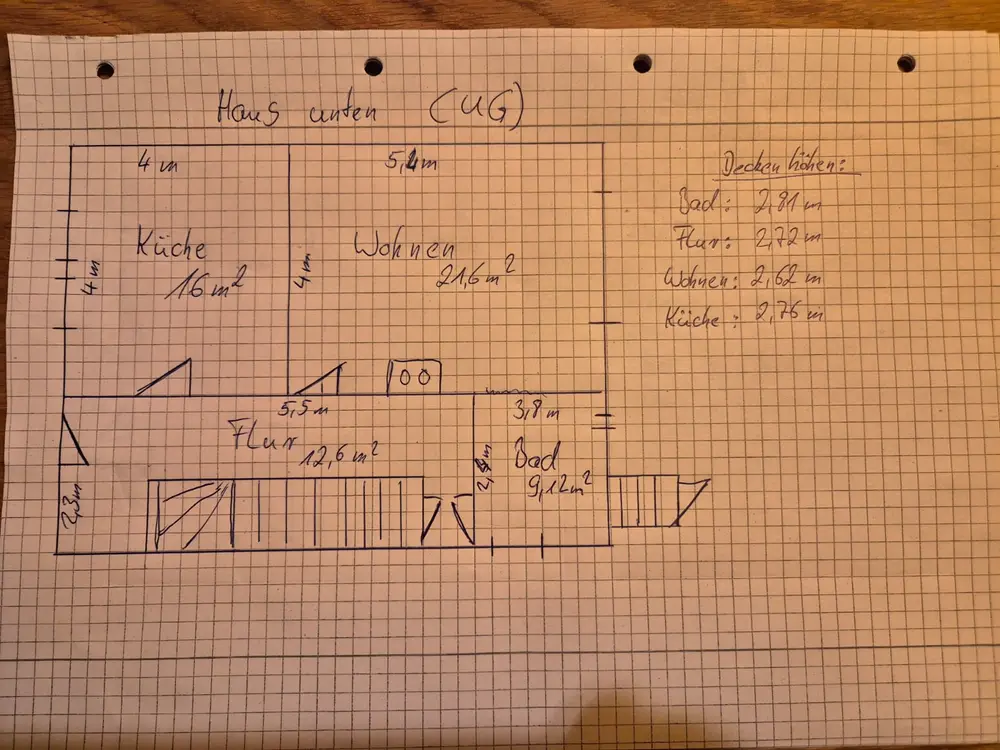 Haus unten (UG)
4 m
5,4m
Küche
16 m²
4 m
Wohnen
21,6 m²
4 m
5,5 m
Flur
12,6 m²
2,3m
3,8 m
Bad
9,12m²
2,4m
Deckenhöhen:
Bad: 2,81 m
Flur: 2,72 m
Wohnen: 2,62 m
Küche: 2,76 m